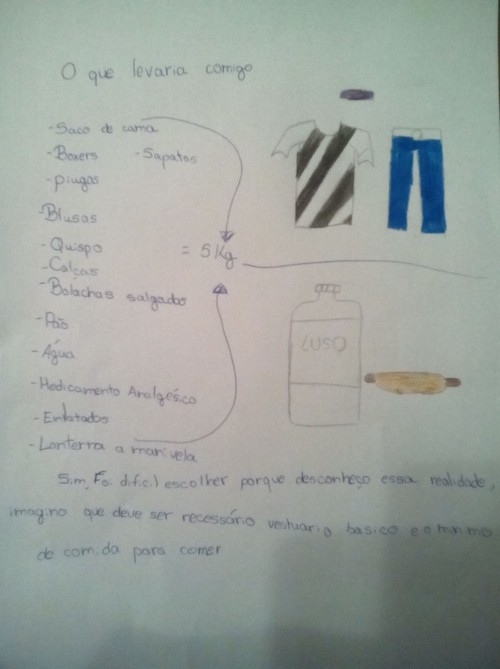 O que levaria comigo
- Saco de cama
- Boxers - Sapatos
- piugas
- Blusas
- Quispo
= 5 Kg
- Calças
- Bolachas salgadas
- Pão
- Água
- Medicamento Analgésico
- Enlatados
- Lanterna a manivela
LUSO
Sim, Foi difícil escolher porque desconheço essa realidade,
imagino que deve ser necessário vestuario basico e o minimo
de comida para comer